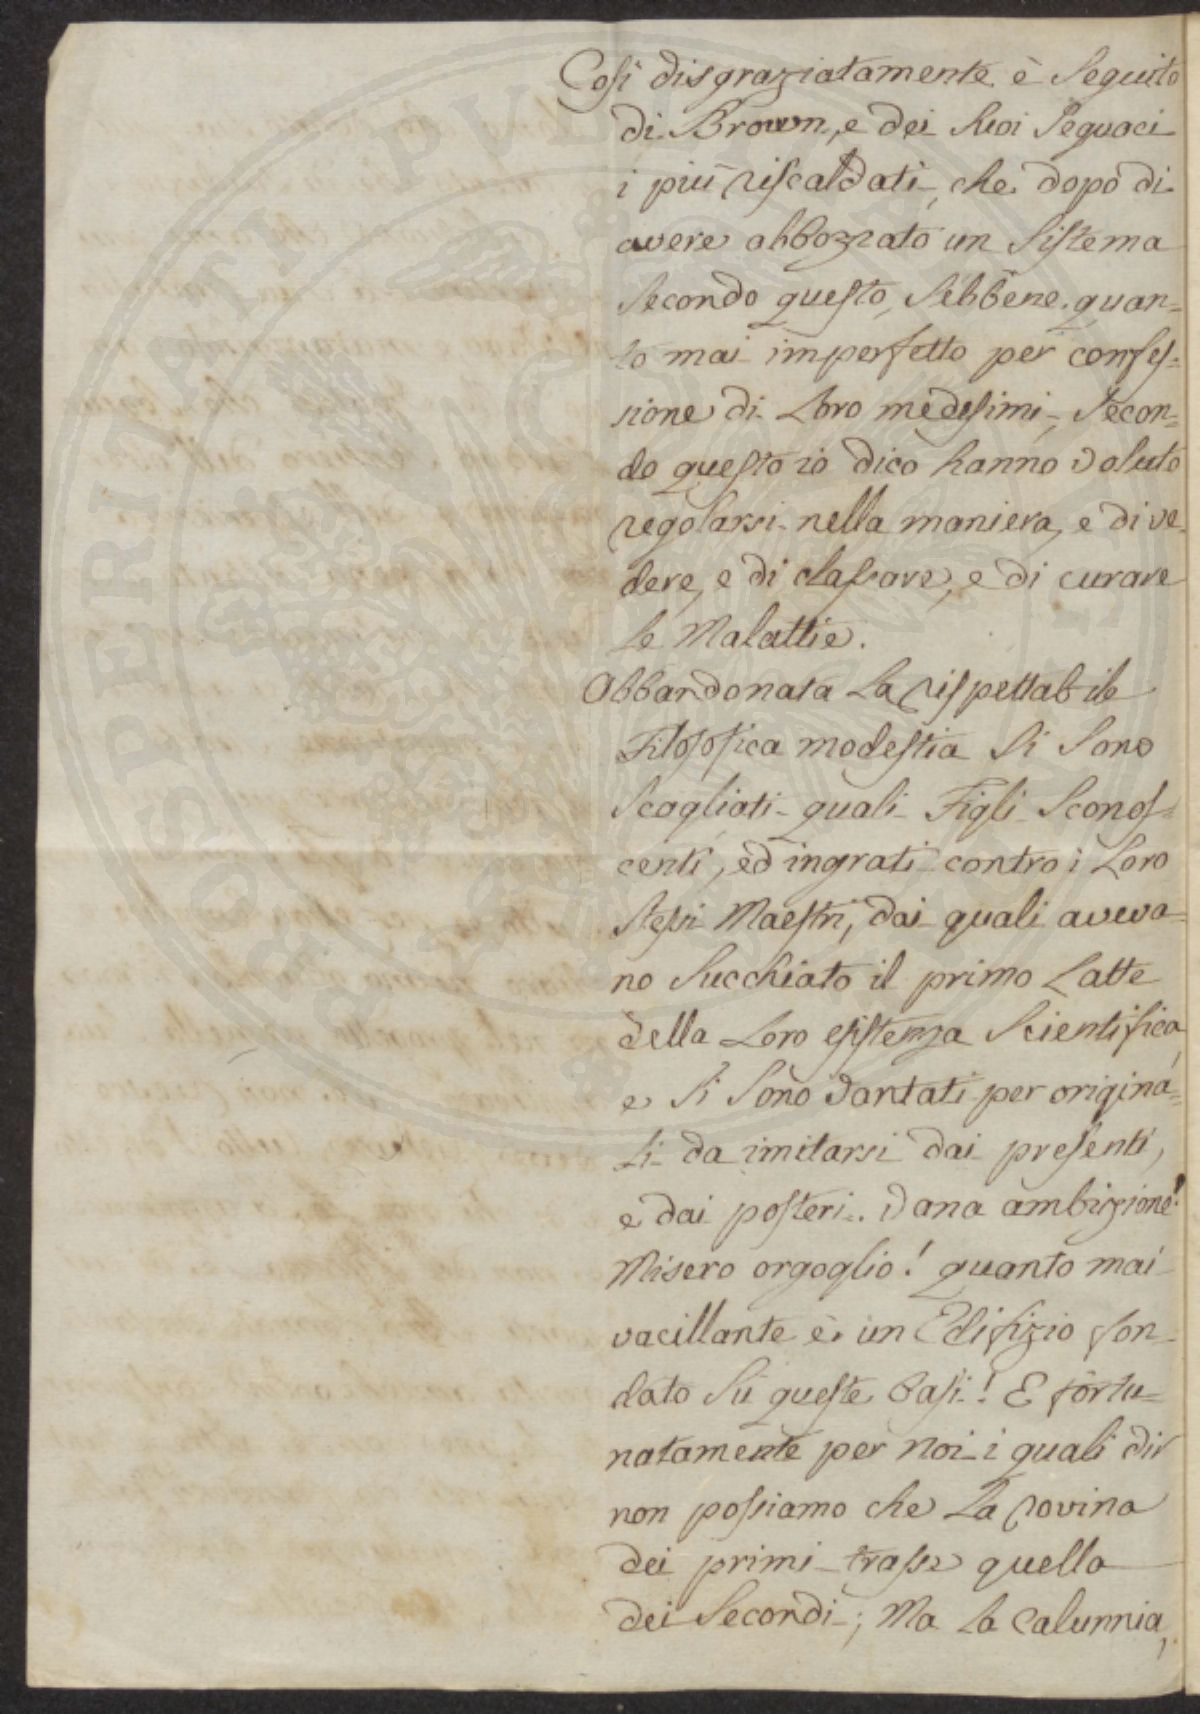 Così disgraziatamente è Seguito
di Brown, e dei Suoi Seguaci
i più riscaldati, che dopo di
avere abbozzato un Sistema
Secondo questo, Sebbene quan=
to mai imperfetto per confes=
sione di Loro medesimi, Secon=
do questo io dico hanno voluto
regolarsi nella maniera, e di ve=
dere, e di classare, e di curare
Le Malattie.
Abbandonata La rispettabile
Filosofica modestia Si Sono
Scagliati quali Figli Sconos=
centi, ed ingrati contro i Loro
Stessi Maestri, dai quali aveva=
no Succhiato il primo Latte
della Loro esistenza Scientifica,
e Si Sono vantati per origina=
li da imitarsi dai presenti,
e dai posteri. Vana ambizione!
Misero orgoglio! quanto mai
vacillante è un Edifizio fon
dato Su queste basi! E fortu=
natamente per Noi i quali dir
non possiamo che La rovina
dei primi trasse quella
dei Secondi; Ma La Calunnia,
PROSPERITATI PUBLICAE